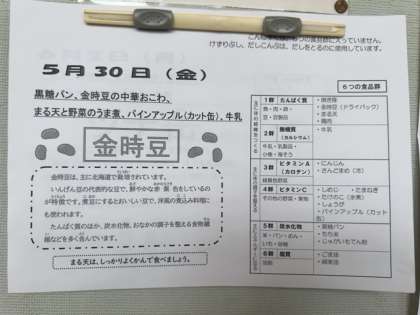 けずりぶし、だしこんぶは、だしをとるのに使用しています。
5月30日（金）
黒糖パン、金時豆の中華おこわ、
まる天と野菜のうま煮、パインアップル(カット缶)、牛乳
金時豆
金時豆は、主に北海道で栽培されています。
いんげん豆の代表的な豆で、鮮やかな赤紫色をしているの
が特徴です。煮豆にするとおいしい豆で、洋風の煮込み料理に
も使われます。
たんぱく質のほか、炭水化物、おなかの調子を整える食物繊
維などを多く含んでいます。
まる天は、しっかりよくかんで食べましょう。
6つの食品群
1群 たんぱく質
魚・肉・卵・
豆・豆製品
・焼き豚
・金時豆(ドライパック)
・まる天
・鶏肉
2群 無機質
(カルシウム)
牛乳・乳製品・
小魚・海そう
・牛乳
3群 ビタミンA
(カロテン)
緑黄色野菜
・にんじん
・さんどまめ(冷)
4群 ビタミンC
その他の野菜・果物
・しめじ ・たまねぎ
・たけのこ(水煮)
・しょうが
・パインアップル(カット
缶)
5群 炭水化物
米・パン・めん・
いも・砂糖
・黒糖パン
・もち米
・じゃがいもでん粉
6群 脂質
油脂
・ごま油
・綿実油